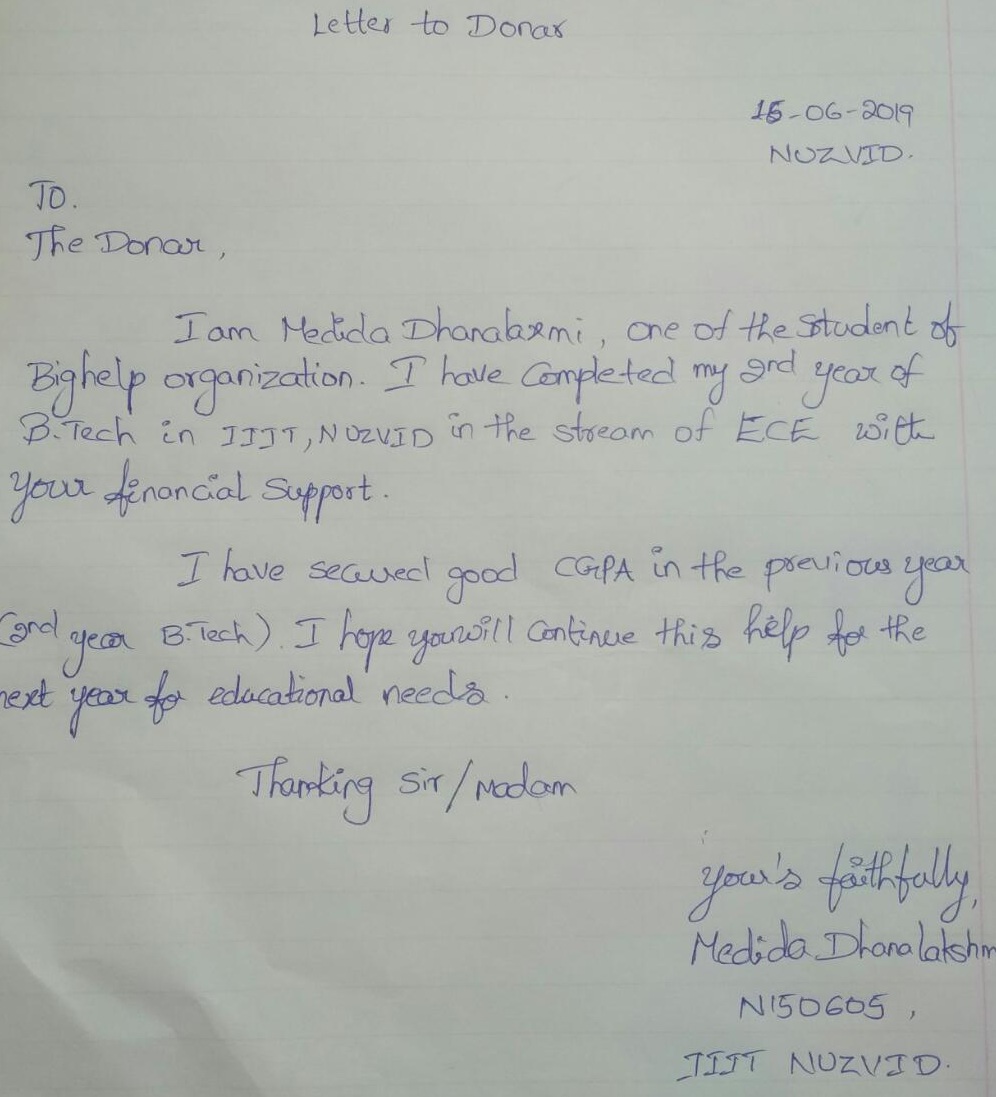 Letter to Donar
15-06-2019
NUZVID.
TO.
The Donar,
I am Medida Dhanalaxmi, one of the Student of
Bighelp organization. I have Completed my 2nd year of
B.Tech in IIIT, NUZVID in the stream of ECE with
your financial Support.
I have secured good CGPA in the previous year
(2nd year B.Tech). I hope you will Continue this help for the
next year for educational needs.
Thanking Sir/Madam
your's faithfully,
Medida Dhanalakshm
N150605,
IIIT NUZVID.